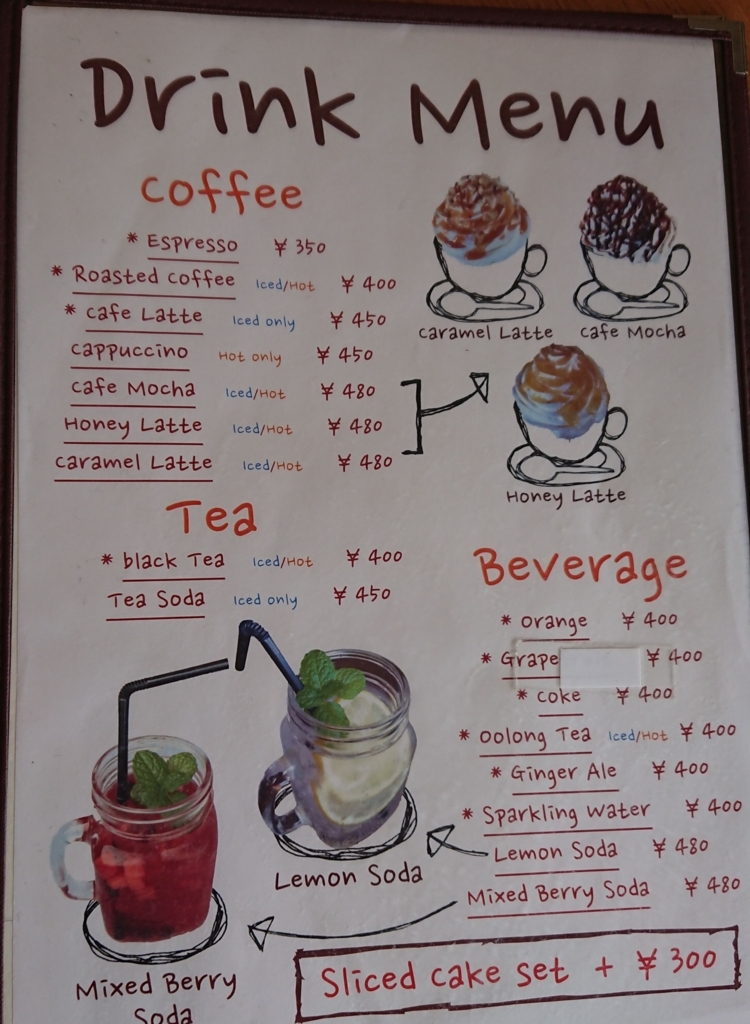 Drink Menu
coffee
* Espresso ¥ 350
* Roasted coffee Iced/Hot ¥ 400
* cafe Latte Iced only ¥ 450
cappuccino Hot only ¥ 450
cafe Mocha Iced/Hot ¥ 480
Honey Latte Iced/Hot ¥ 480
caramel Latte Iced/Hot ¥ 480
caramel Latte
cafe Mocha
Honey Latte
Tea
* black Tea Iced/Hot ¥ 400
Tea Soda Iced only ¥ 450
Beverage
* orange ¥ 400
* Grape ¥ 400
* coke ¥ 400
* oolong Tea Iced/Hot ¥ 400
* Ginger Ale ¥ 400
* Sparkling water ¥ 400
Lemon Soda ¥ 480
Mixed Berry Soda ¥ 480
Lemon Soda
Mixed Berry
Soda
Sliced cake set + ¥ 300